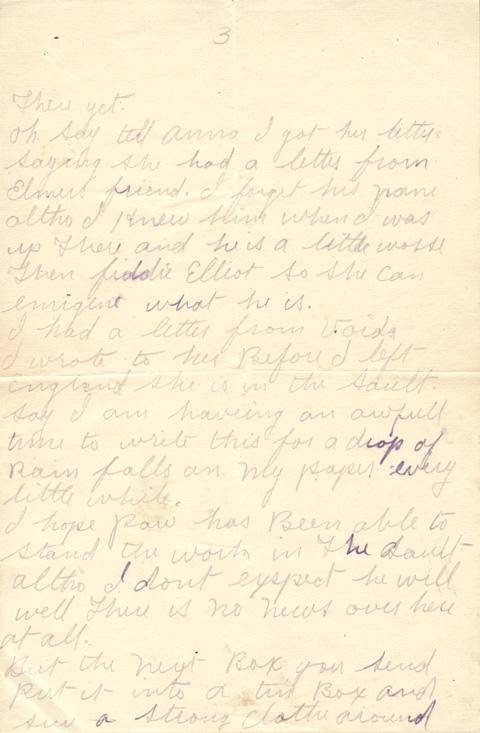 3
There yet.
Oh Say tell Anna I got her letter
saying she had a letter from
Elmers friend. I forget his name
altho I knew him when I was
up There and he is a little worse
Then fiddie Elliot so she can
emigine what he is.
I had a letter from
I wrote to her Before I left
England she is in the Sault.
Say I am haveing an awfull
time to write this for a drop of
Rain falls on my paper every
little while.
I hope Paw has Been able to
stand the work in The Sault
altho I dont exspect he will
well There is No News over here
at all.
But the Next Box you send
Put it into a tin Box and
sew a strong clothe around